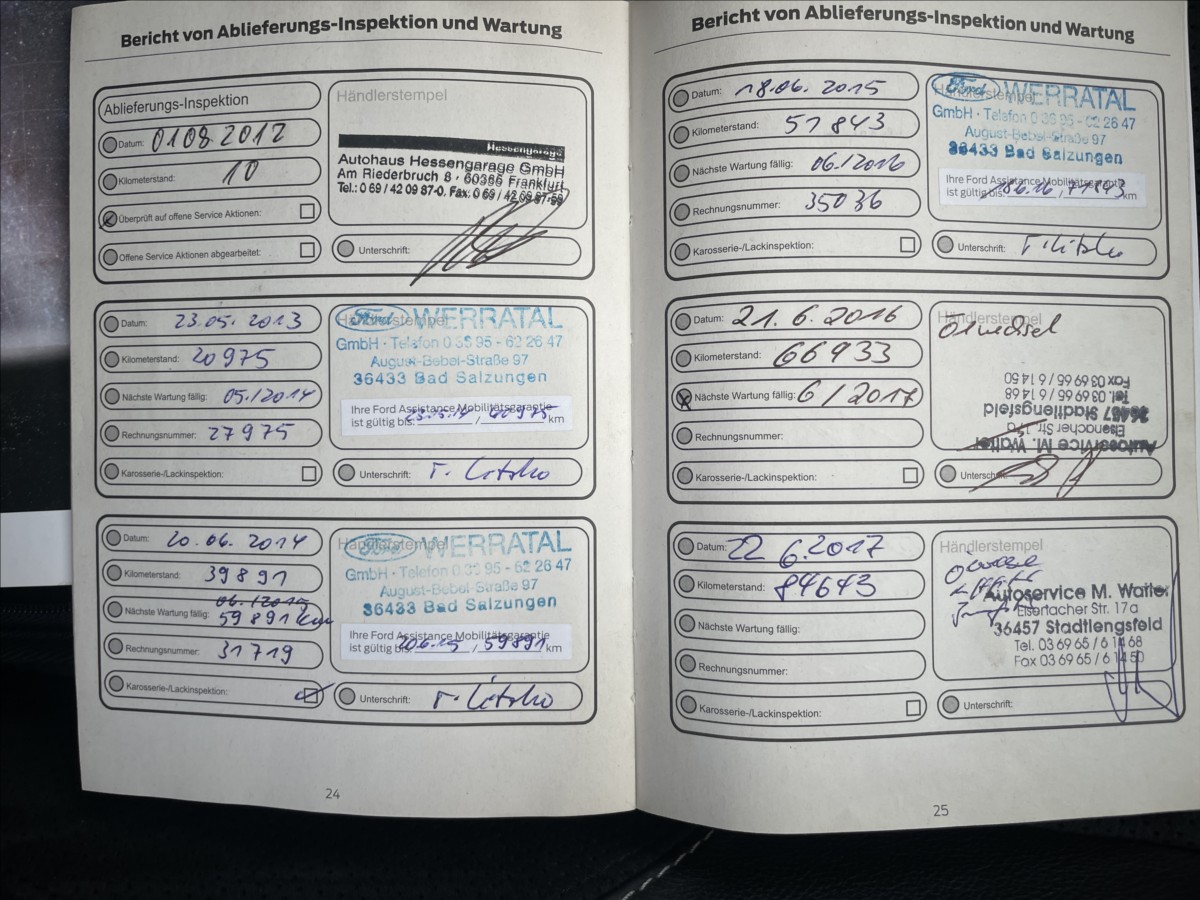 Bericht von Ablieferungs-Inspektion und Wartung
Ablieferungs-Inspektion
Datum: 01 08. 2012
Kilometerstand: 10
Überprüft auf offene Service Aktionen:
Offene Service Aktionen abgearbeitet:
Händlerstempel
Hessengarage
Autohaus Hessengarage GmbH
Am Riederbruch 8 · 60386 Frankfurt
Tel.: 0 69 / 42 09 87-0, Fax: 0 69 / 42 09 87-99
Unterschrift:
Datum: 23.05. 2013
Kilometerstand: 20975
Nächste Wartung fällig: 05/2014
Rechnungsnummer: 27975
Karosserie-/Lackinspektion:
Händlerstempel
Ford WERRATAL
GmbH · Telefon 0 36 95 - 62 26 47
August-Bebel-Straße 97
36433 Bad Salzungen
Ihre Ford Assistance Mobilitätsgarantie
ist gültig bis: 23.5.14 / 40975 km
Unterschrift:
Datum: 20.06. 2014
Kilometerstand: 39891
06./2015
Nächste Wartung fällig: 59891 km
Rechnungsnummer: 31719
Karosserie-/Lackinspektion:
Händlerstempel
Ford WERRATAL
GmbH · Telefon 0 36 95 - 62 26 47
August-Bebel-Straße 97
36433 Bad Salzungen
Ihre Ford Assistance Mobilitätsgarantie
ist gültig bis: 20.6.15 / 59891 km
Unterschrift:
24
Bericht von Ablieferungs-Inspektion und Wartung
Datum: 18.06. 2015
Kilometerstand: 51843
Nächste Wartung fällig: 06./2016
Rechnungsnummer: 35036
Karosserie-/Lackinspektion:
Händlerstempel
Ford WERRATAL
GmbH · Telefon 0 36 95 - 62 26 47
August-Bebel-Straße 97
36433 Bad Salzungen
Ihre Ford Assistance Mobilitätsgarantie
ist gültig bis: 18.6.16 / 71843 km
Unterschrift:
Datum: 21. 6. 2016
Kilometerstand: 66933
Nächste Wartung fällig: 6/2017
Rechnungsnummer:
Karosserie-/Lackinspektion:
Händlerstempel
Ölwechsel
Autoservice M. Walter
Eisenacher Str. 17a
36457 Stadtlengsfeld
Tel. 03 69 65 / 6 14 68
Fax 03 69 65 / 6 14 50
Unterschrift:
Datum: 22 6.2017
Kilometerstand: 84643
Nächste Wartung fällig:
Rechnungsnummer:
Karosserie-/Lackinspektion:
Händlerstempel
Ölwechsel
Autoservice M. Walter
Eisenacher Str. 17a
36457 Stadtlengsfeld
Tel. 03 69 65 / 6 14 68
Fax 03 69 65 / 6 14 50
Unterschrift:
25